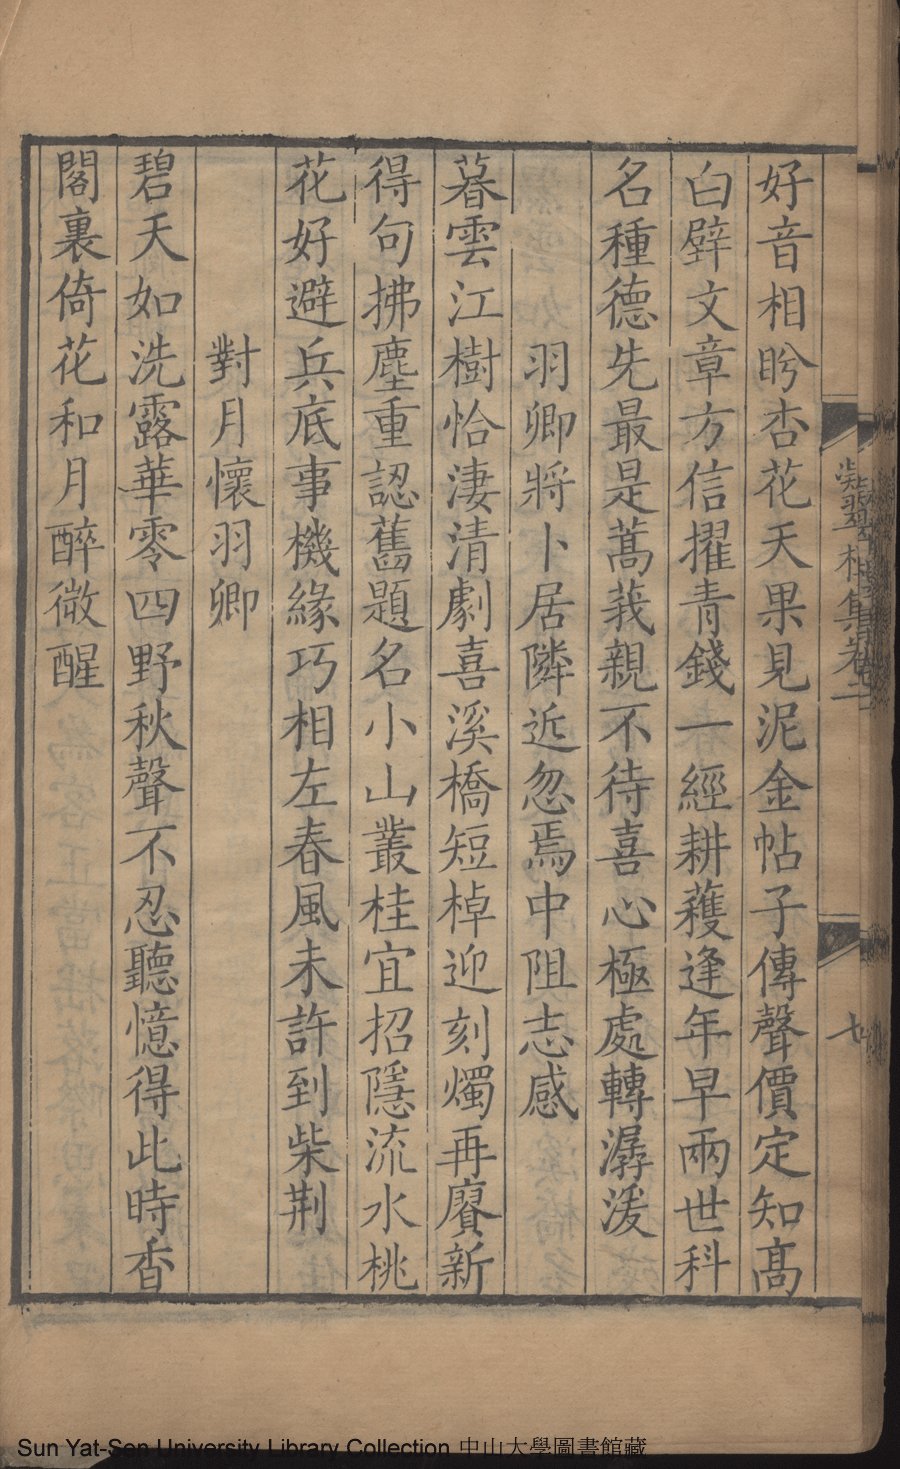 好音相盻杏花天果見泥金帖子傳聲價定知髙
白璧文章方信擢青錢一經耕穫逢年早兩世科
名種德先最是蒿莪親不待喜心極處轉潺湲
羽卿將卜居隣近忽焉中阻志感
暮雲江樹恰淒清劇喜溪橋短棹迎刻燭再賡新
得句拂塵重認舊題名小山叢桂宜招隱流水桃
花好避兵底事機緣巧相左春風未許到柴荆
對月懷羽卿
碧天如洗露華零四野秋聲不忍聽憶得此時香
閣裏倚花和月醉微醒
七
Sun Yat-Sen University Library Collection 中山大學圖書館藏